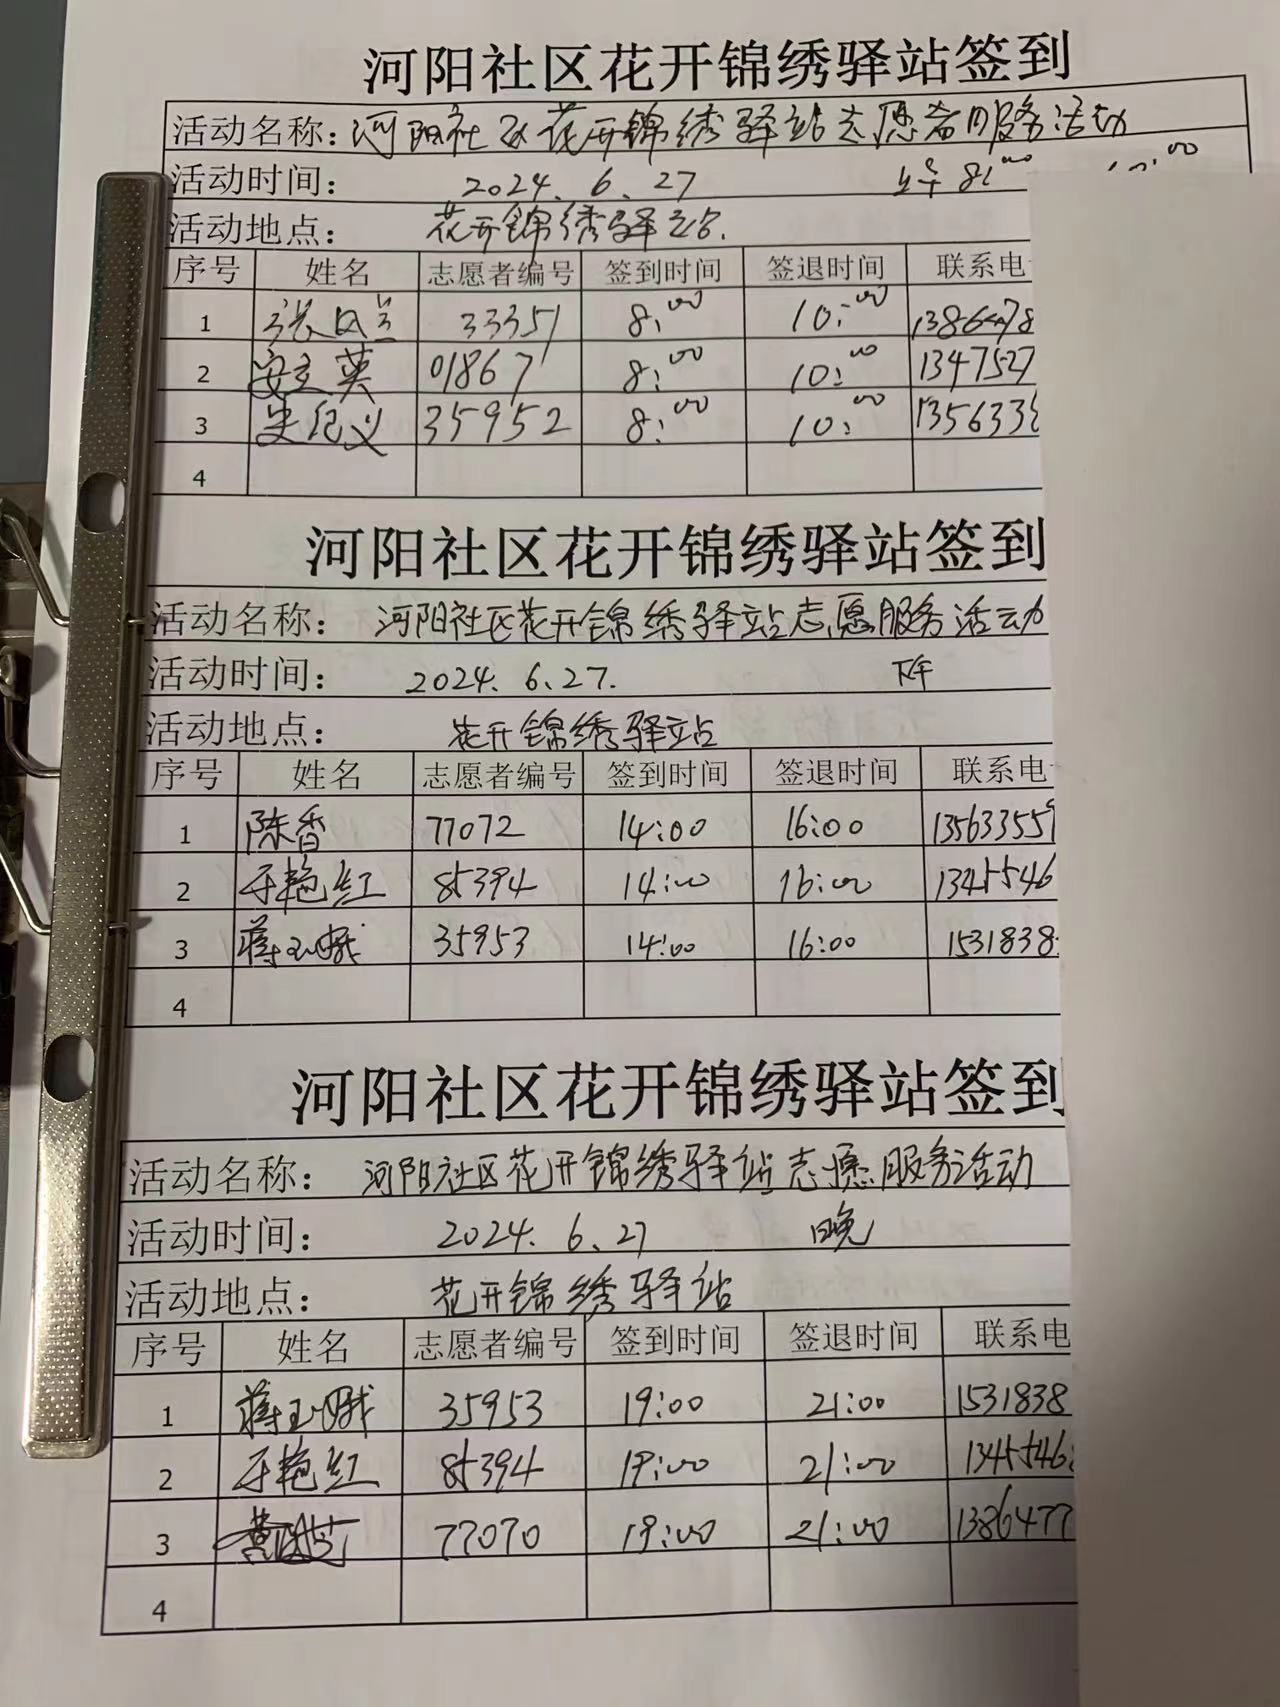 河阳社区花开锦绣驿站签到
活动名称: 河阳社区花开锦绣驿站志愿者服务活动
活动时间: 2024.6.27 上午 8:00 10:00
活动地点: 花开锦绣驿站.
序号 姓名 志愿者编号 签到时间 签退时间 联系电
1 33351 8:00 10:00
2 安立英 01867 8:00 10:00 1347527
3 史纪义 35952 8:00 10:00 1356333
4
河阳社区花开锦绣驿站签到
活动名称: 河阳社区花开锦绣驿站志愿服务活动
活动时间: 2024.6.27. 下午
活动地点: 花开锦绣驿站
序号 姓名 志愿者编号 签到时间 签退时间 联系电
1 陈香 77072 14:00 16:00 135633559
2 于艳红 85394 14:00 16:00 1345546
3 蒋玉娥 35953 14:00 16:00 1531838
4
河阳社区花开锦绣驿站签到
活动名称: 河阳社区花开锦绣驿站志愿服务活动
活动时间: 2024.6.27 晚
活动地点: 花开锦绣驿站
序号 姓名 志愿者编号 签到时间 签退时间 联系电
1 蒋玉娥 35953 19:00 21:00 1531838
2 于艳红 85394 19:00 21:00 1345546
3 77070 19:00 21:00 1386477
4